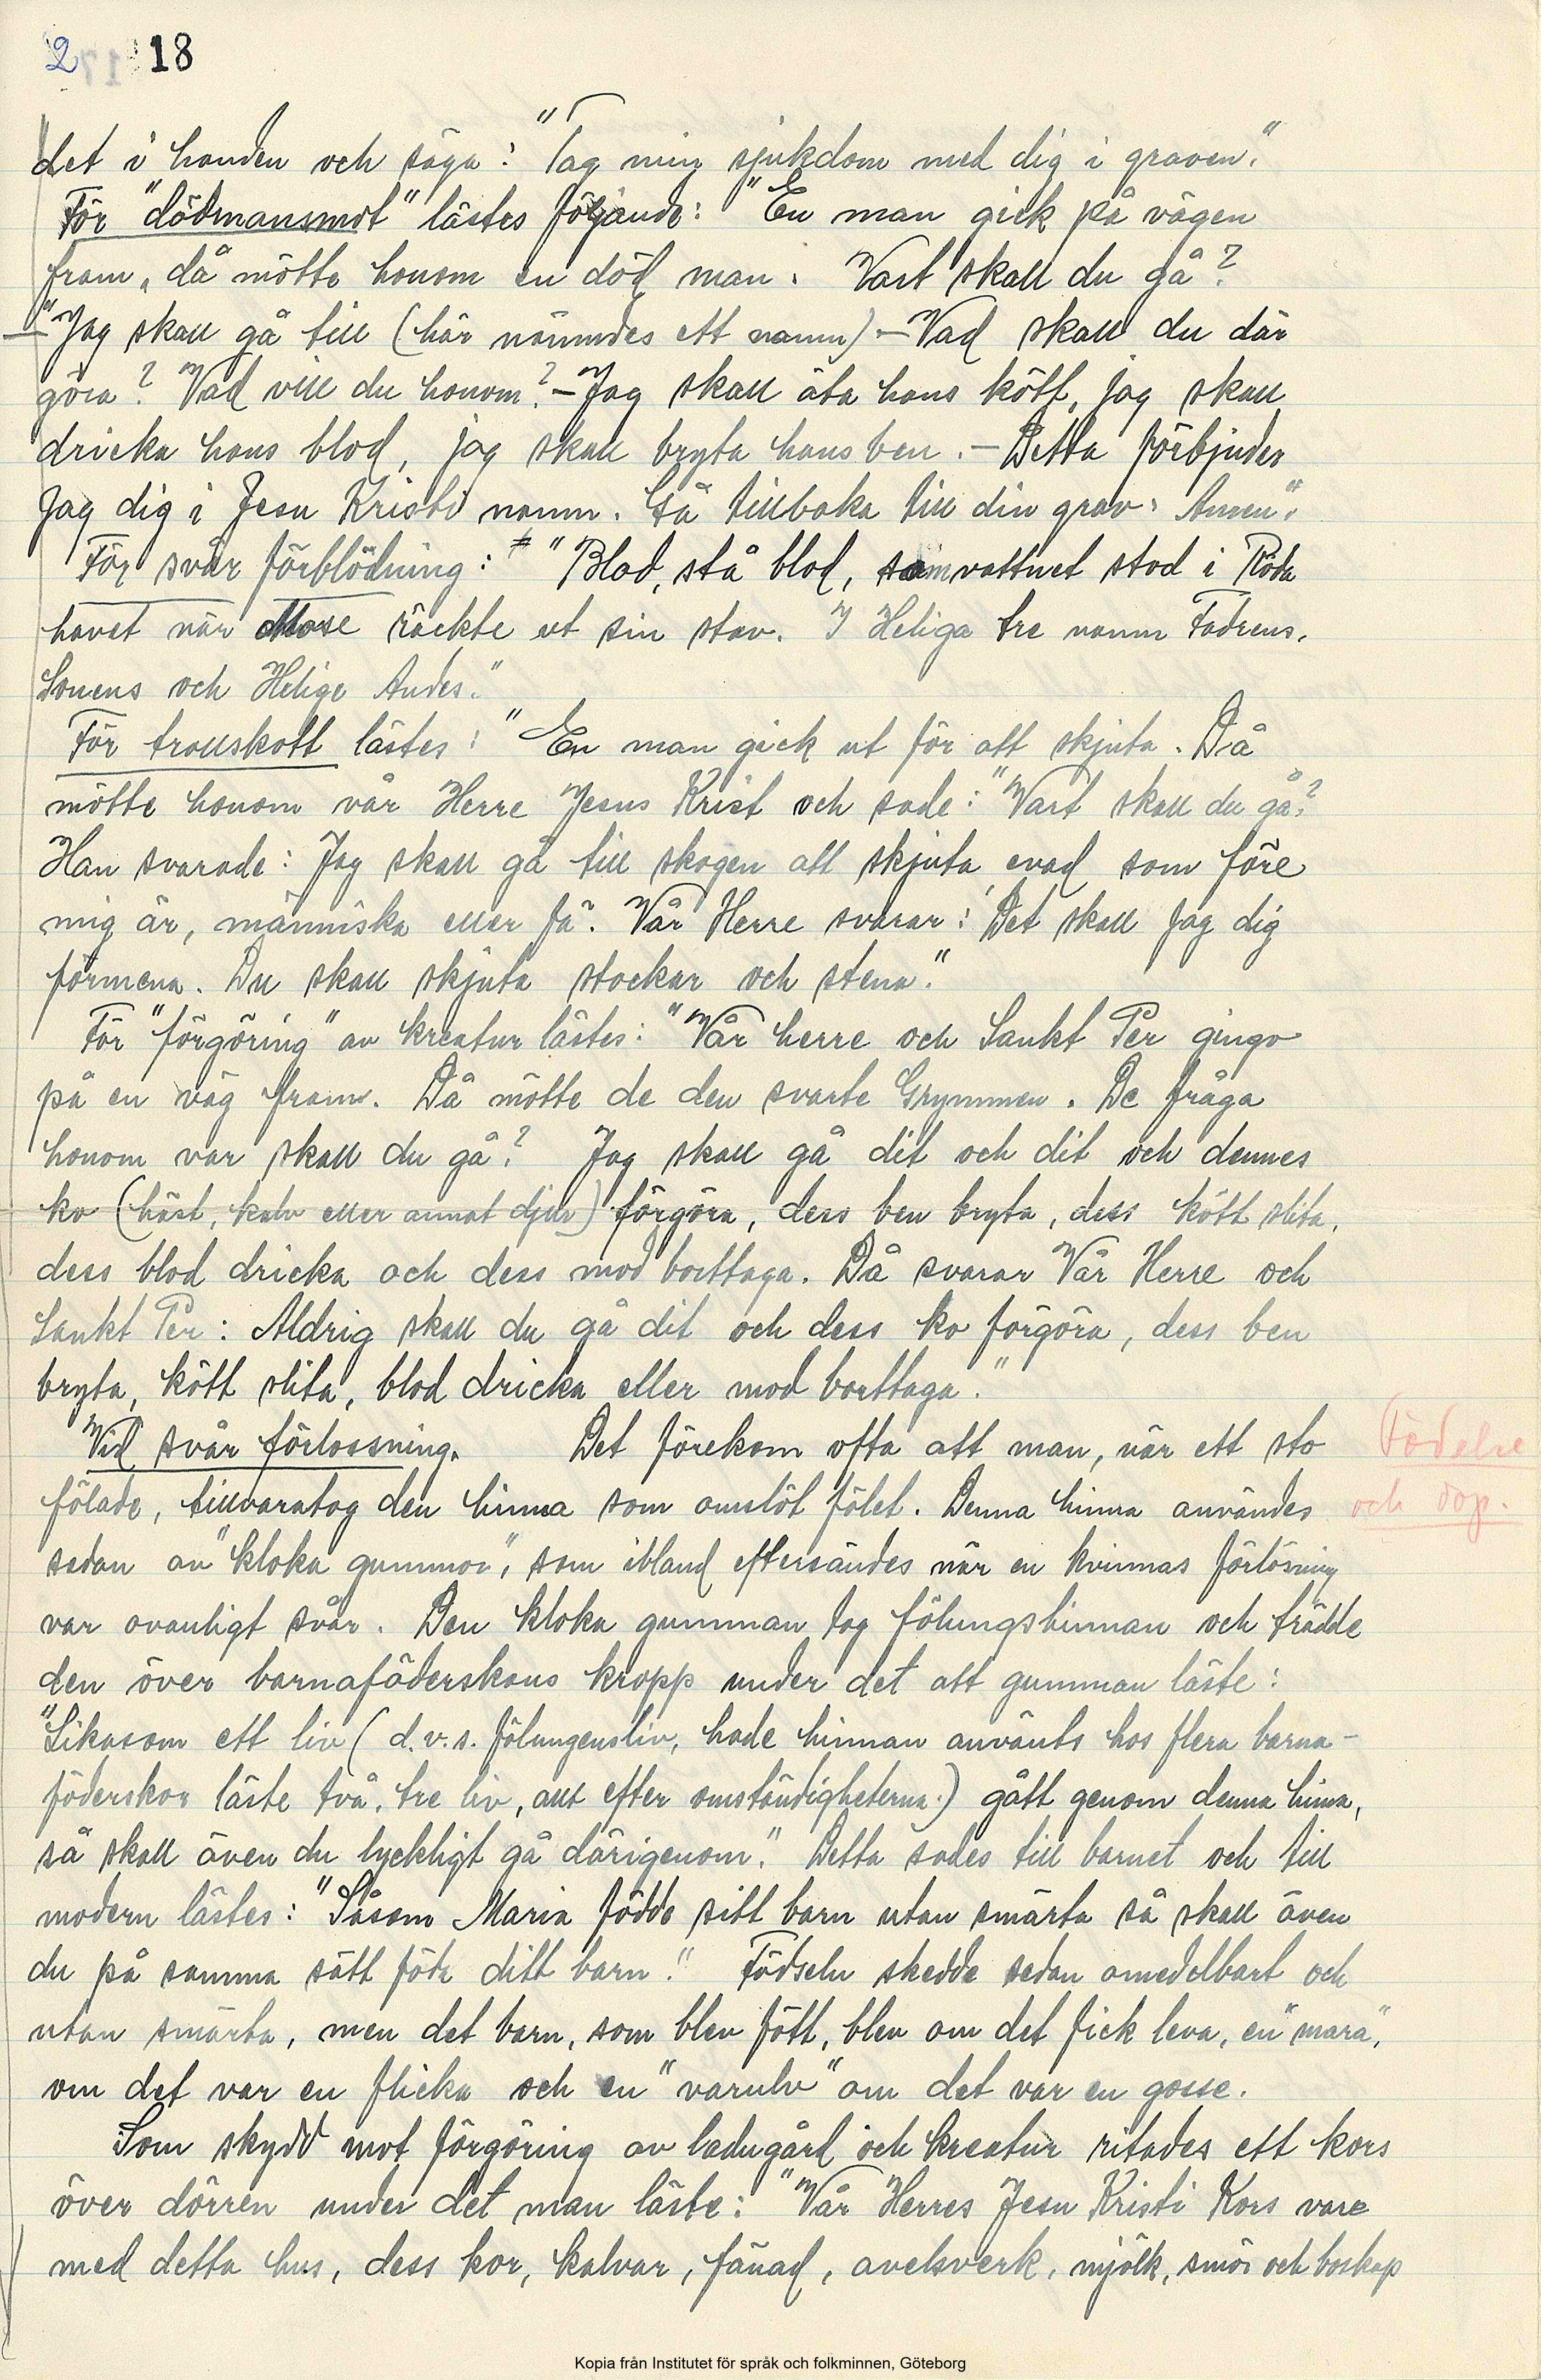 2 18
det i handen och säga: "Tag min sjukdom med dig i graven."
För "dödmansmot" lästes följande: "En man gick på vägen
fram, då mötte honom en död man. Vart skall du gå?
—"Jag skall gå till (här nämndes ett namn) — Vad skall du där
göra? Vad vill du honom? — Jag skall äta hans kött, jag skall
dricka hans blod, jag skall bryta hans ben. — Detta förbjuder
Jag dig i Jesu Kristi namn. Gå tillbaka till din grav. Amen".
För svår förblödning: "Blod, stå blod, som vattnet stod i Röda
havet när Mose räckte ut sin stav. I Heliga tre namn Fadrens,
Sonens och Helige Andes."
För trollskott lästes: "En man gick ut för att skjuta. Då
mötte honom vår Herre Jesus Krist och sade: "Vart skall du gå?
Han svarade: Jag skall gå till skogen att skjuta evad som före
mig är, människa eller fä". Vår Herre svarar: Det skall Jag dig
förmena. Du skall skjuta stockar och stena."
För "förgöring" av kreatur lästes: "Vår herre och Sankt Per gingo
på en väg fram. Då mötte de den svarte Grymmen. De fråga
honom var skall du gå? Jag skall gå dit och dit och dennes
ko (häst, kalv eller annat djur) förgöra, dess ben bryta, dess kött slita,
dess blod dricka och dess mod borttaga. Då svarar Vår Herre och
Sankt Per: Aldrig skall du gå dit och dess ko förgöra, dess ben
bryta, kött slita, blod dricka eller mod borttaga."
Vid svår förlossning. Det förekom ofta att man, när ett sto
Födelse
fölade, tillvaratog den hinna som omslöt fölet. Denna hinna användes
och dop.
sedan av "kloka gummor", som ibland eftersändes när en kvinnas förlösning
var ovanligt svår. Den kloka gumman tog fölungshinnan och trädde
den över barnaföderskans kropp under det att gumman läste:
"Likasom ett liv (d.v.s. fölungensliv, hade hinnan använts hos flera barna-
föderskor läste två, tre liv, allt efter omständigheterna.) gått genom denna hinna,
så skall även du lyckligt gå därigenom." Detta sades till barnet och till
modern lästes: "Såsom Maria födde sitt barn utan smärta så skall även
du på samma sätt föda ditt barn." Födseln skedde sedan omedelbart och
utan smärta, men det barn, som blev fött, blev om det fick leva, en "mara",
om det var en flicka och en "varulv" om det var en gosse.
Som skydd mot förgöring av ladugård och kreatur ritades ett kors
över dörren under det man läste: "Vår Herres Jesu Kristi Kors vare
med detta hus, dess kor, kalvar, fänad, avelsverk, mjölk, smör och boskap
Kopia från Institutet för språk och folkminnen, Göteborg